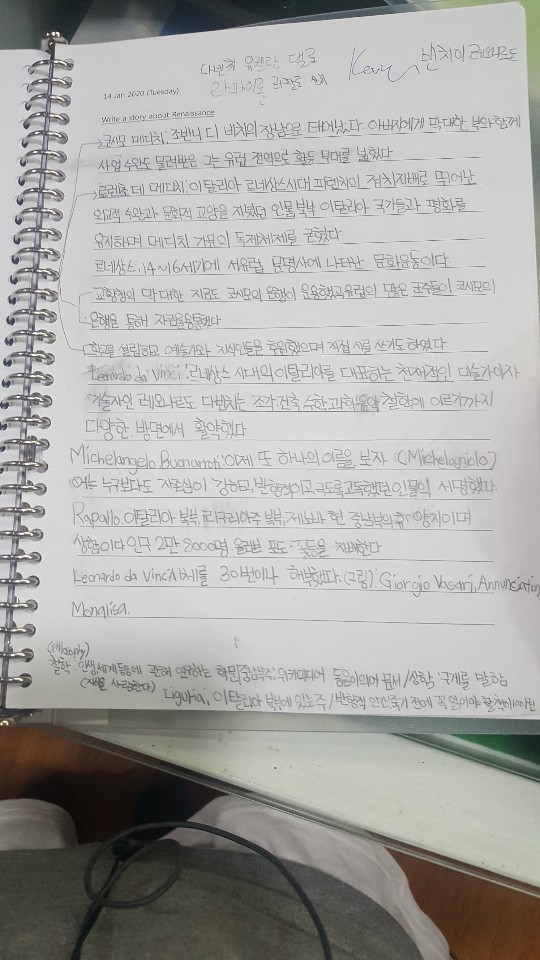 다빈치 미켈란 델로
라파이로 라팔로
Kevin
빈치이 레오나르도
14 Jan 2020 (Tuesday)
Write a story about Renaissance
코시모 메디치, 조반니 디 비치의 장남으로 태어났다. 아버지에게 막대한 부와 함께
사업 수완도 물려받은 그는 유럽 전역으로 활동 무대를 넓혔다.
로렌초 데 메디치 이탈리아 르네상스시대 피렌차의 정치지배로 뛰어난
외교적 수완과 문화적 교양을 지녔던 인물북부 이탈리아 국가들과 평화를
유지하며 메디치 가문의 독재체제를 굳혔다
르네상스: 14~16세기에 서유럽 문명사에 나타난 문화운동이다.
교황청의 막대한 자금도 코시모의 은행이 운용했고유럽의 많은 군주들이 코시모의
은행을 통해 자금을융통했다
학교를 설립하고 예술가와 지식인들을 후원했으며 직접 시를 쓰기도 하였다
Leonardo da Vinci 르네상스 시대의 이탈리아를 대표하는 천재적인 미술가이자
기술자인 레오나르도 다빈치는 조각 건축 수학 과학 음악 철학에 이르기까지
다양한 방면에서 활약했다
Michelangelo Buonarroti 이제 또 하나의 이름을 보자 (Michelagniolo)
어는 누구보다도 자존심이 강하고 반항적이고 극도로고독했던 인물의 서명했다
Rapallo: 이탈리아 북부 리구리아주 북부 제노바 현 중남부의 휴양지이며
상합이다 인구 2만 8000명 올리브 포도 꽃등을 재배한다
Leonardo da Vinci 시체를 30번이나 해부했다. (그림) Giorgio Vasari, Annunciation
Monalisa.
(philosophy)
철학 인생,세계등등에 관해 연구하는 학문 위키미디어 동음이의어 문서 / 상합 국제를 말함
(지혜를 사랑한다) Liguria, 이탈리아 북부에 있는 주 / 반항적 인간 죽기 전에 꼭 읽어야 할 책이